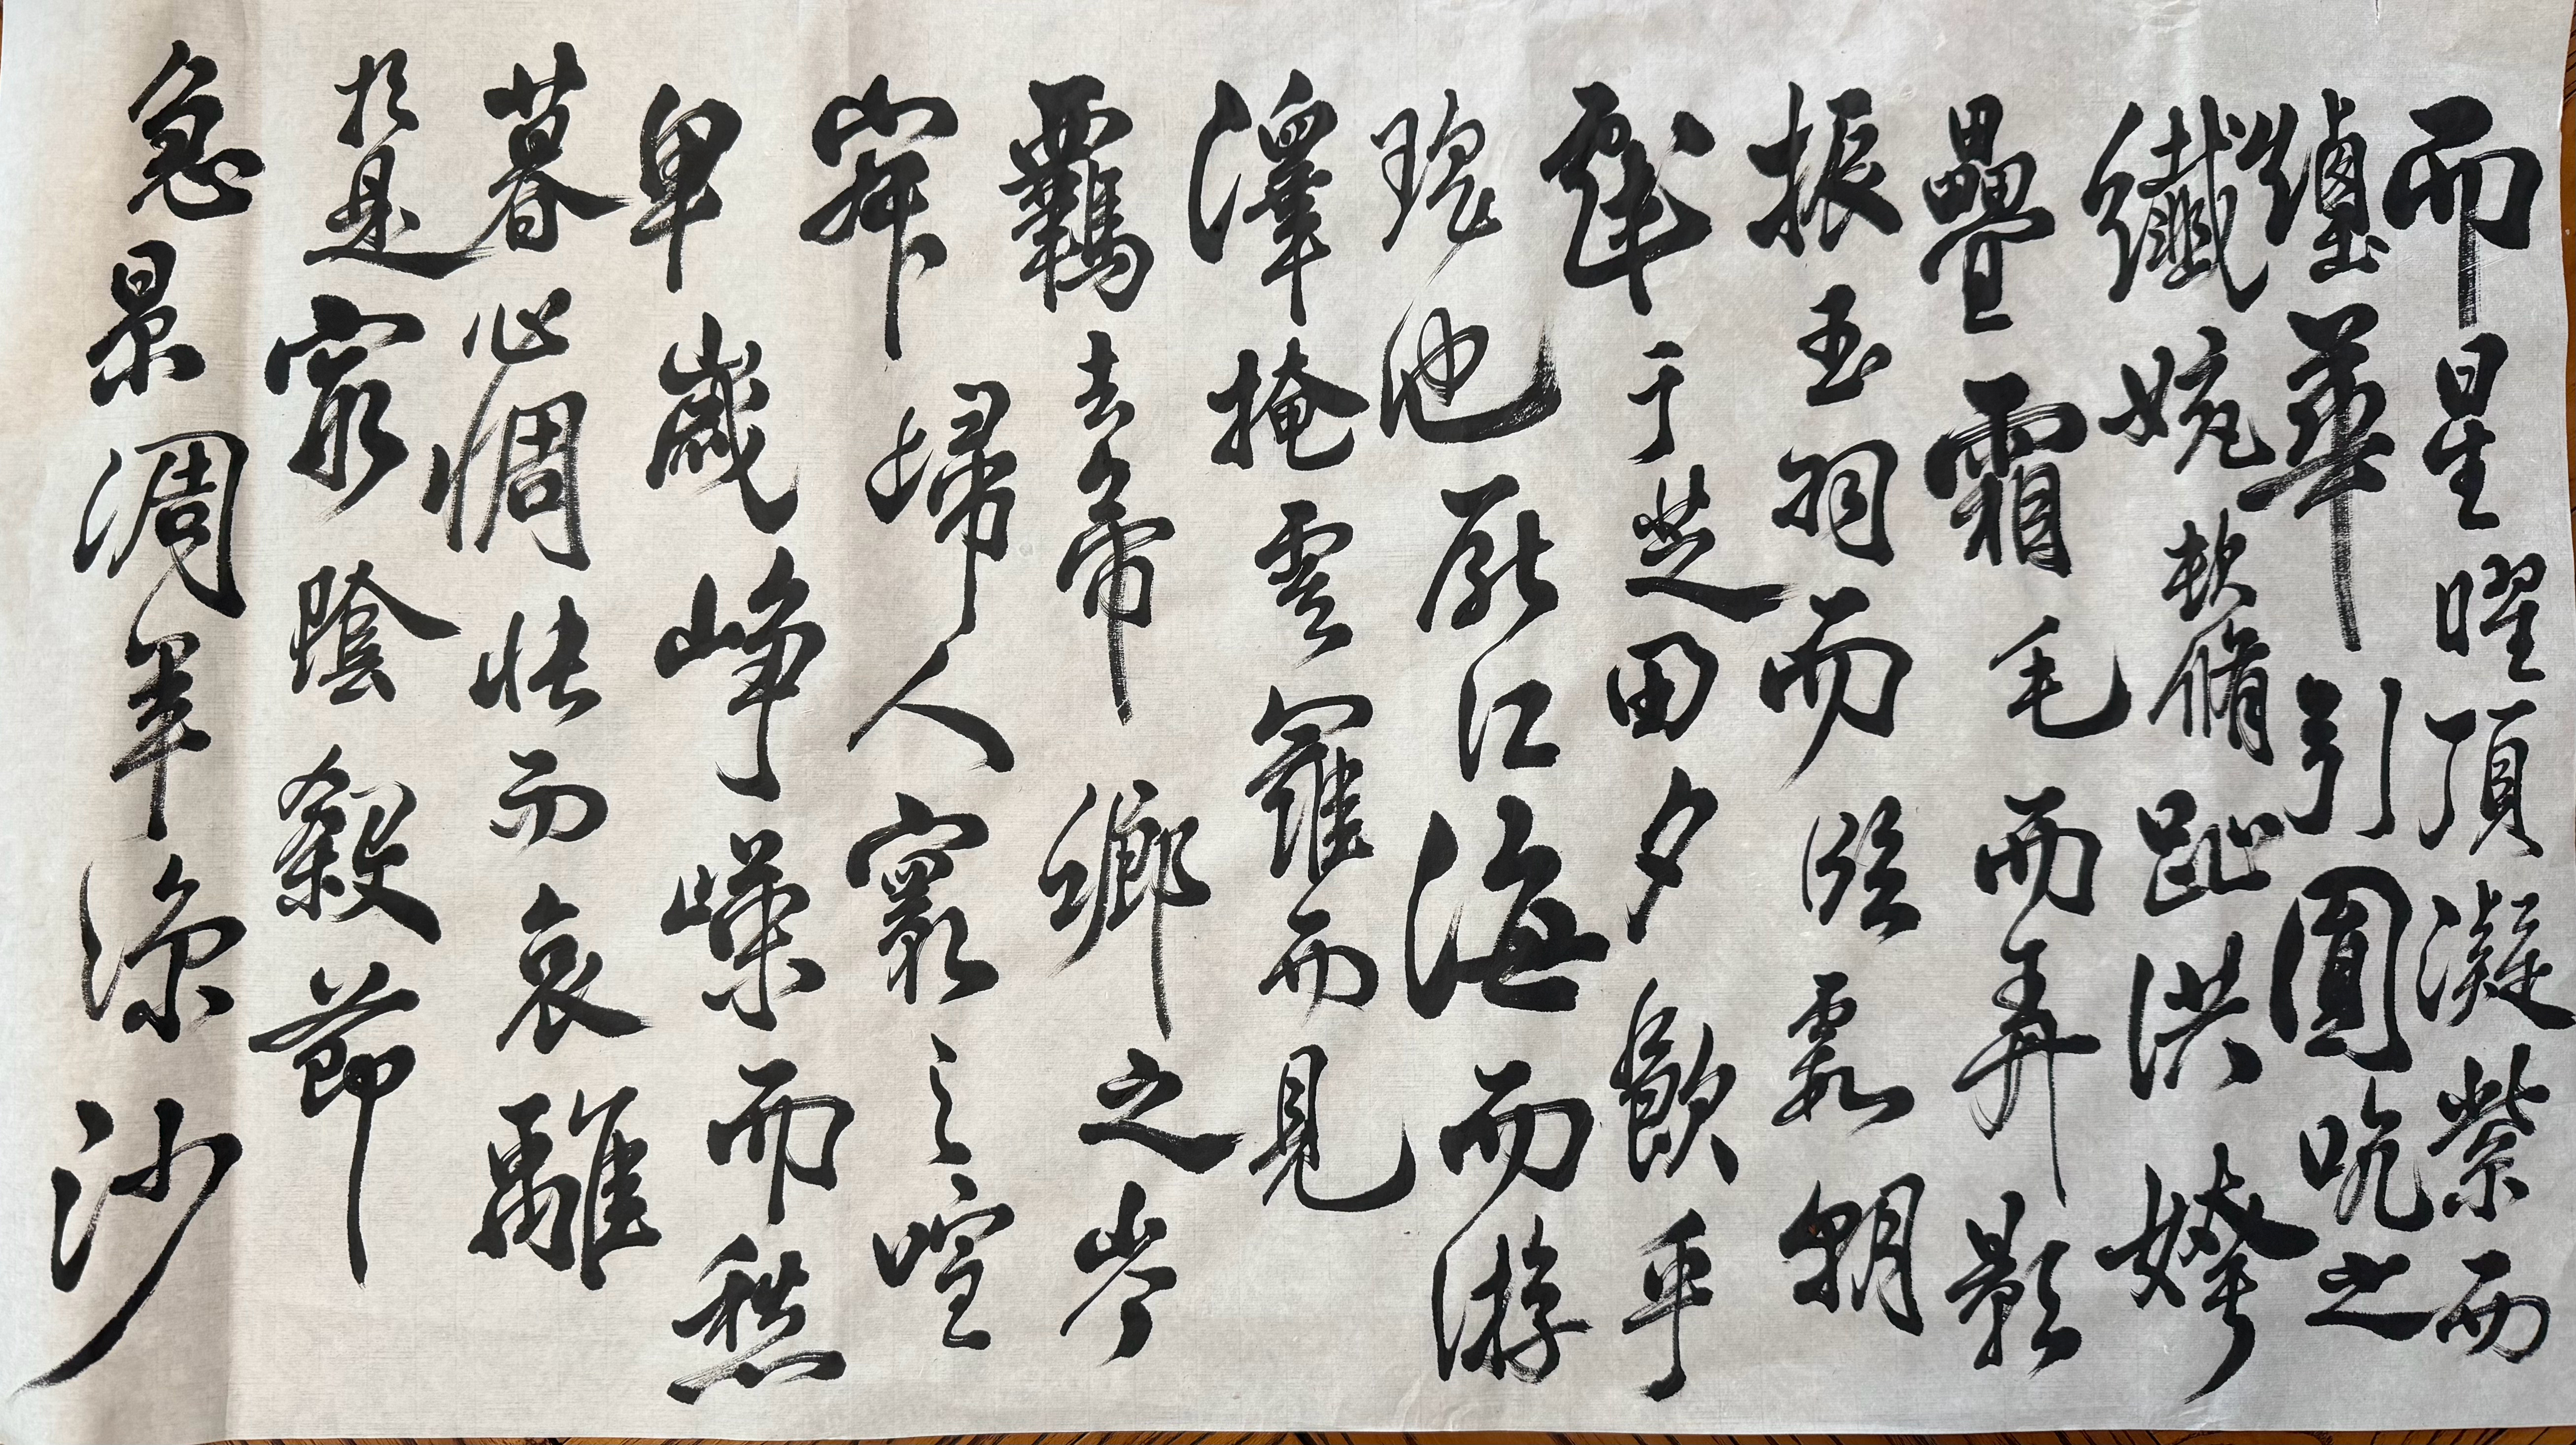 而星曜頂凝紫而
煙華引圓吭之
纖婉頓脩趾洪姱
疊霜毛而弄影
振玉羽而臨霞朝
戲于芝田夕飲乎
瑤池厭江海而游
澤掩雲羅而見
羈去帝鄉之岑
寂歸人寰之喧
卑歲崢嶸而愁
暮心惆悵而哀離
於是窮陰殺節
急景凋年涼沙